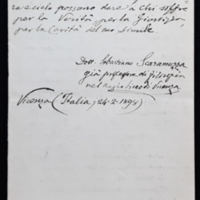 possono dare a chi soffre
per la Verità, per la Giustizia,
per la Carità del suo simile.
Dott. Sebastiano Scaramuzza
già professore di filosofia
nel Liceo di Vicenza
Vicenza (Italia) 24-2-1898